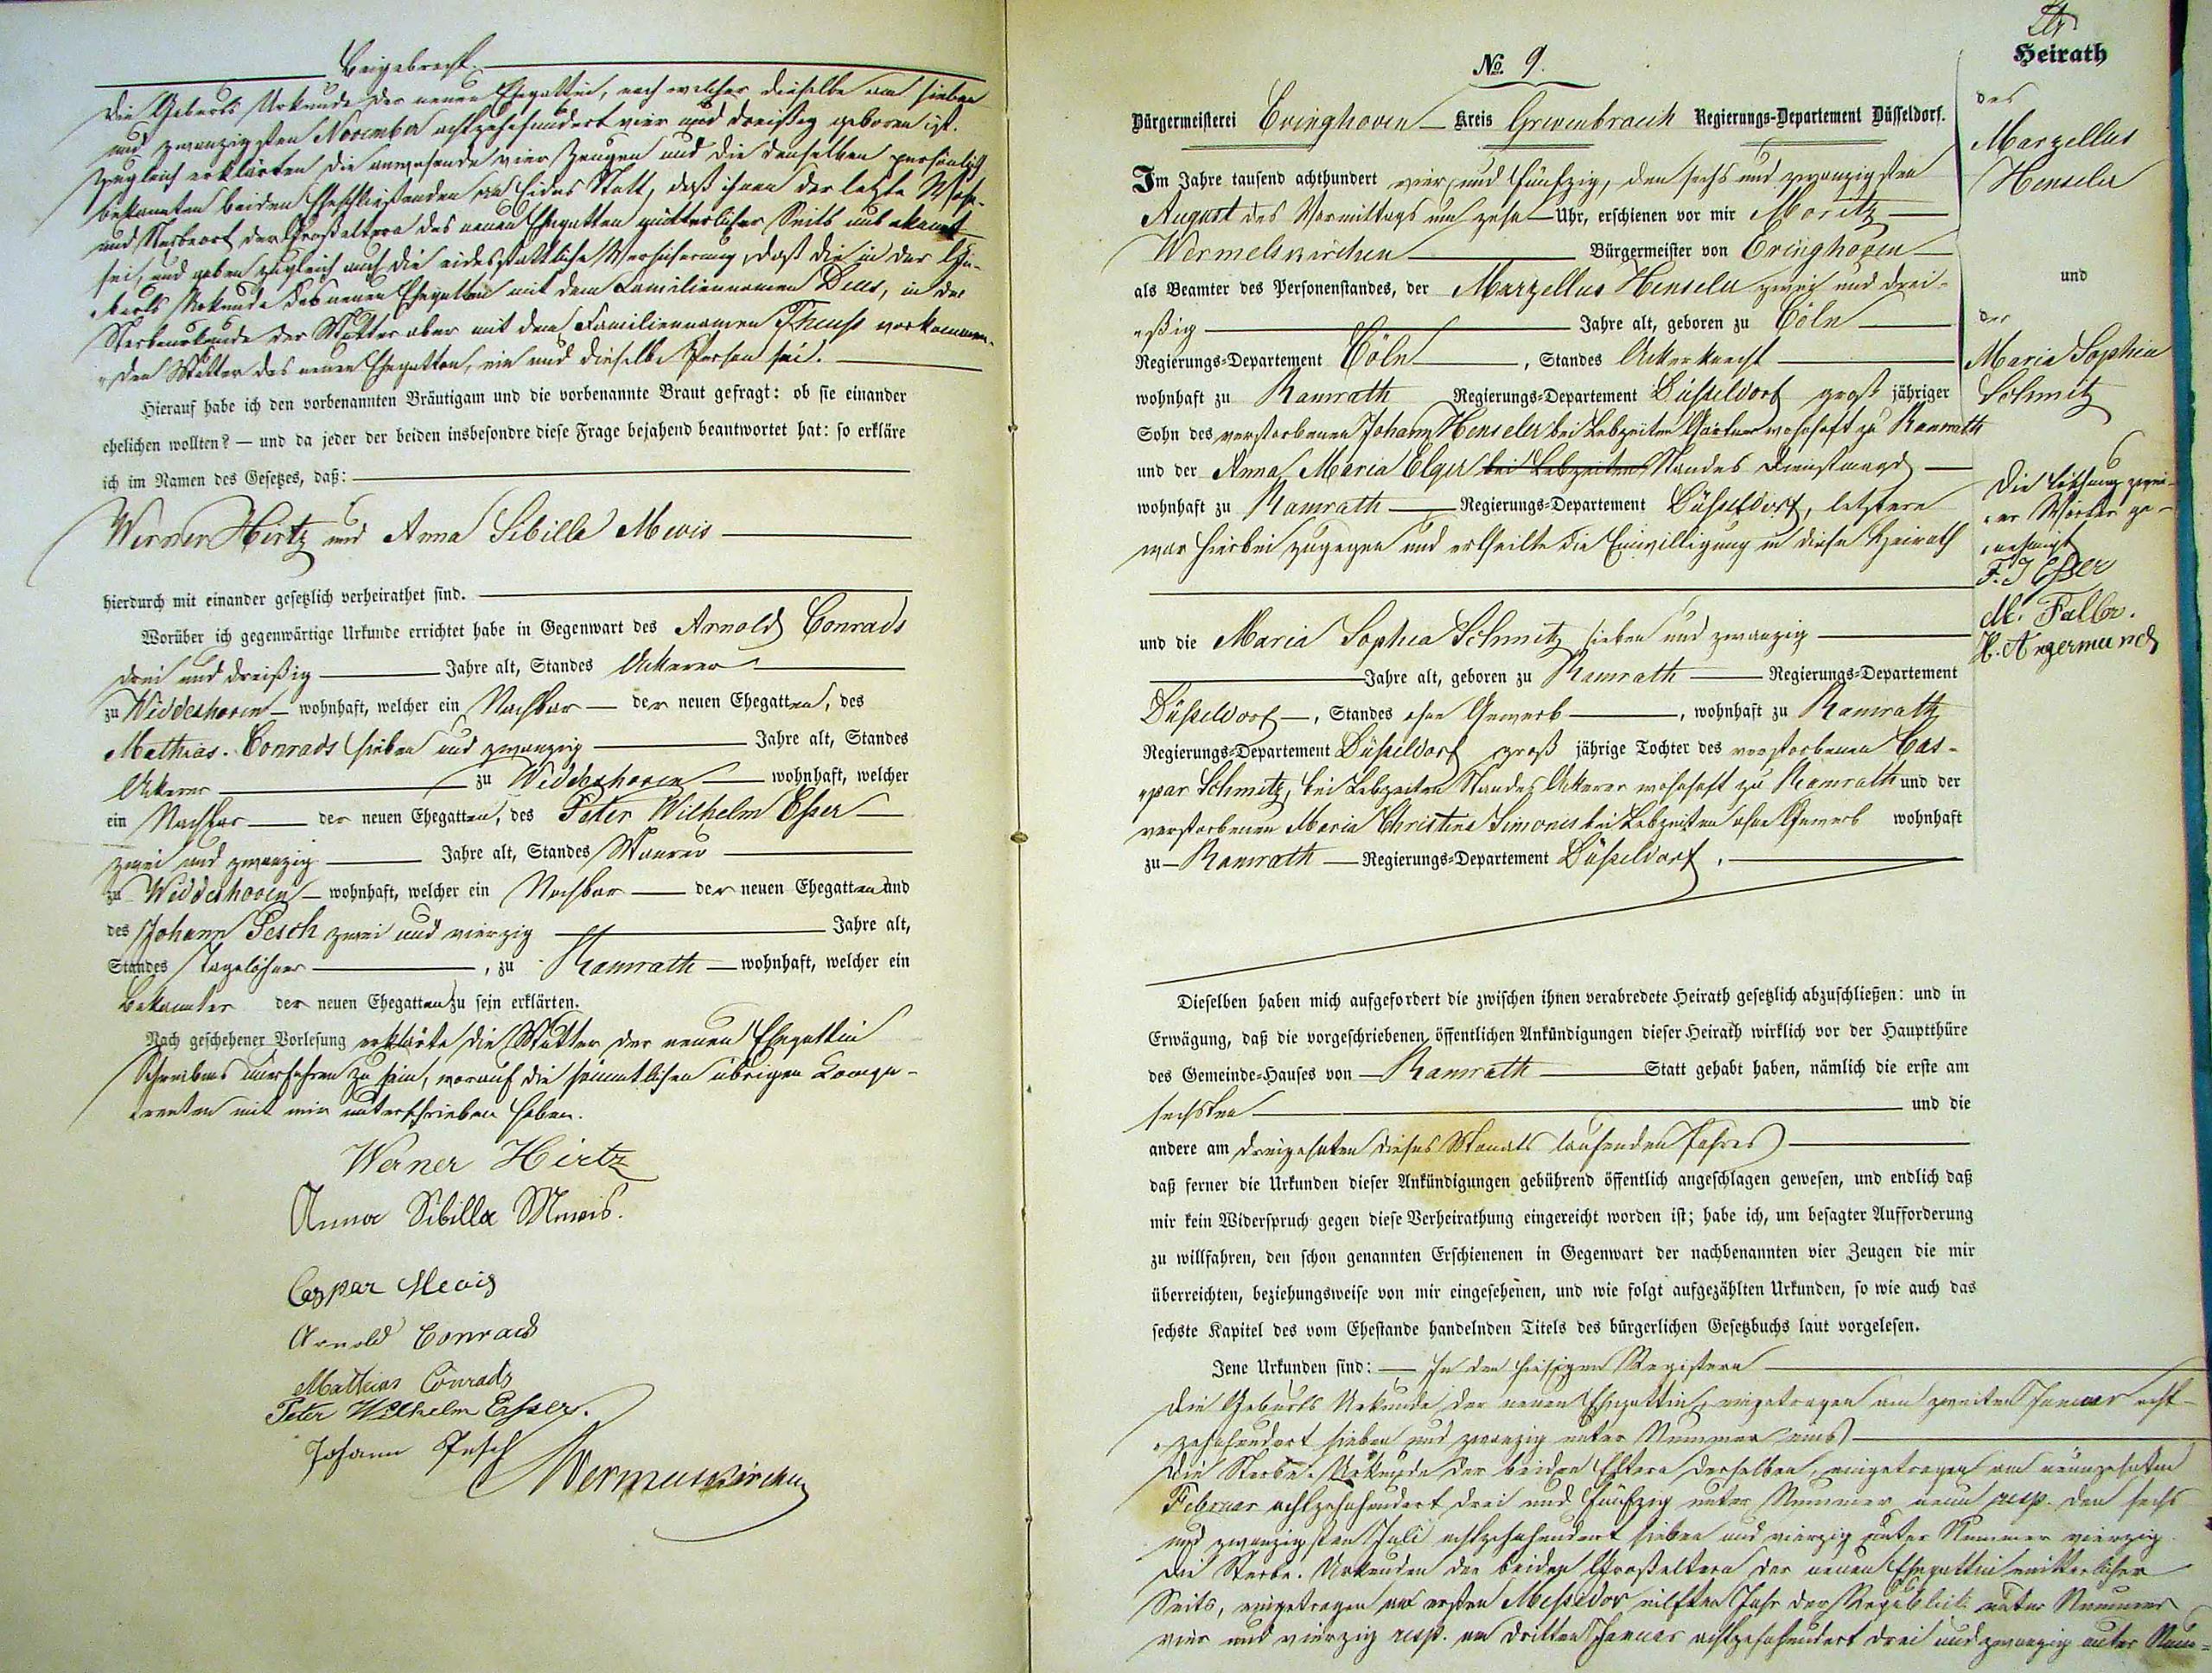 Beigebracht.
Die Geburts Urkunde der neuen Ehegattin, nach welcher dieselbe am sieben
und zwanzigsten November achtzehnhundert vier und dreißig geboren ist.
Zugleich erklärten die anwesende vier Zeugen und die denselben persönlich
bekannten beiden Eheschließenden an Eides Statt, daß ihnen der letzte Wohn-
und Sterbeort der Großeltern des neuen Ehegatten mütterlicher Seits unbekannt
sei, und gaben zugleich auch die eidesstattliche Versicherung, daß die in der Ge-
burts Urkunde des neuen Ehegatten mit dem Familiennamen Deus, in der
Sterbeurkunde der Mutter aber mit dem Familiennamen Theuß vorkommen-
den Mutter des neuen Ehegatten, ein und dieselbe Person sei.
Hierauf habe ich den vorbenannten Bräutigam und die vorbenannte Braut gefragt: ob sie einander
ehelichen wollten? — und da jeder der beiden insbesondre diese Frage bejahend beantwortet hat: so erkläre
ich im Namen des Gesetzes, daß:
Werner Hirtz und Anna Sibilla Mevis
hierdurch mit einander gesetzlich verheirathet sind.
Worüber ich gegenwärtige Urkunde errichtet habe in Gegenwart des Arnold Conrads
drei und dreißig Jahre alt, Standes Ackerer
zu Widdeshoven wohnhaft, welcher ein Nachbar der neuen Ehegatten, des
Mathias Conrads sieben und zwanzig Jahre alt, Standes
Ackerer zu Widdeshoven wohnhaft, welcher
ein Nachbar der neuen Ehegatten, des Peter Wilhelm Esser
zwei und zwanzig Jahre alt, Standes Maurer
zu Widdeshoven wohnhaft, welcher ein Nachbar der neuen Ehegatten und
des Johann Pesch zwei und vierzig Jahre alt,
Standes Tagelöhner, zu Ramrath wohnhaft, welcher ein
Bekannter der neuen Ehegatten zu sein erklärten.
Nach geschehener Vorlesung erklärte die Mutter der neuen Ehegattin
Schreibens unerfahren zu sein, worauf die sämmtlichen übrigen Compa-
renten mit mir unterschrieben haben.
Werner Hirtz
Anna Sibilla Mewis.
Caspar Mevis
Arnold Conrads
Mathias Conrads
Peter Wilhelm Esser.
Johann Pesch
Wermelskirchen
№ 9.
Bürgermeisterei Evinghoven Kreis Grevenbroich Regierungs-Departement Düsseldorf.
Im Jahre tausend achthundert vier und fünfzig, den sechs und zwanzigsten
August des Vormittags um zehn Uhr, erschienen vor mir Moritz
Wermelskirchen Bürgermeister von Evinghoven
als Beamter des Personenstandes, der Marzellus Henseler zwei und drei-
ßig Jahre alt, geboren zu Cöln
Regierungs-Departement Cöln, Standes Ackerknecht
wohnhaft zu Ramrath Regierungs-Departement Düsseldorf groß jähriger
Sohn des verstorbenen Johann Henseler bei Lebzeiten Gärtner wohnhaft zu Ramrath
und der Anna Maria Elger bei Lebzeiten Standes Dienstmagd
wohnhaft zu Ramrath Regierungs-Departement Düsseldorf, letztere
war hierbei zugegen und ertheilte die Einwilligung in diese Heirath
und die Maria Sophia Schmitz sieben und zwanzig
Jahre alt, geboren zu Ramrath Regierungs-Departement
Düsseldorf, Standes ohne Gewerb, wohnhaft zu Ramrath
Regierungs-Departement Düsseldorf groß jährige Tochter des verstorbenen Cas-
par Schmitz, bei Lebzeiten Standes Ackerer wohnhaft zu Ramrath und der
verstorbenen Maria Christina Simonis bei Lebzeiten ohne Gewerb wohnhaft
zu Ramrath Regierungs-Departement Düsseldorf.
Dieselben haben mich aufgefordert die zwischen ihnen verabredete Heirath gesetzlich abzuschließen: und in
Erwägung, daß die vorgeschriebenen öffentlichen Ankündigungen dieser Heirath wirklich vor der Hauptthüre
des Gemeinde-Hauses von Ramrath Statt gehabt haben, nämlich die erste am
sechsten und die
andere am dreizehnten dieses Monats laufenden Jahres
daß ferner die Urkunden dieser Ankündigungen gebührend öffentlich angeschlagen gewesen, und endlich daß
mir kein Widerspruch gegen diese Verheirathung eingereicht worden ist; habe ich, um besagter Aufforderung
zu willfahren, den schon genannten Erschienenen in Gegenwart der nachbenannten vier Zeugen die mir
überreichten, beziehungsweise von mir eingesehenen, und wie folgt aufgezählten Urkunden, so wie auch das
sechste Kapitel des vom Ehestande handelnden Titels des bürgerlichen Gesetzbuchs laut vorgelesen.
Jene Urkunden sind: — In den hiesigen Registern
Die Geburts Urkunde der neuen Ehegattin, eingetragen am zweiten Januar acht-
zehnhundert sieben und zwanzig unter Nummer eins
Die Sterbe-Urkunde der beiden Eltern derselben, eingetragen am neunzehnten
Februar achtzehnhundert drei und fünfzig unter Nummer neun resp. den sechs
und zwanzigsten Juli achtzehnhundert sieben und vierzig unter Nummer vierzig.
Die Sterbe-Urkunden der beiden Großeltern der neuen Ehegattin mütterlicher
Seits, eingetragen am ersten Messidor eilften Jahr der Republick unter Nummer
vier und vierzig resp. am dritten Januar achtzehnhundert drei und zwanzig unter Num-
Heirath
des
Marzellus
Henseler
und
der
Maria Sophia
Schmitz
Die Löschung zwei-
er Wörter ge-
nehmigt
F. J Esser
M. Faller.
H. Angermund